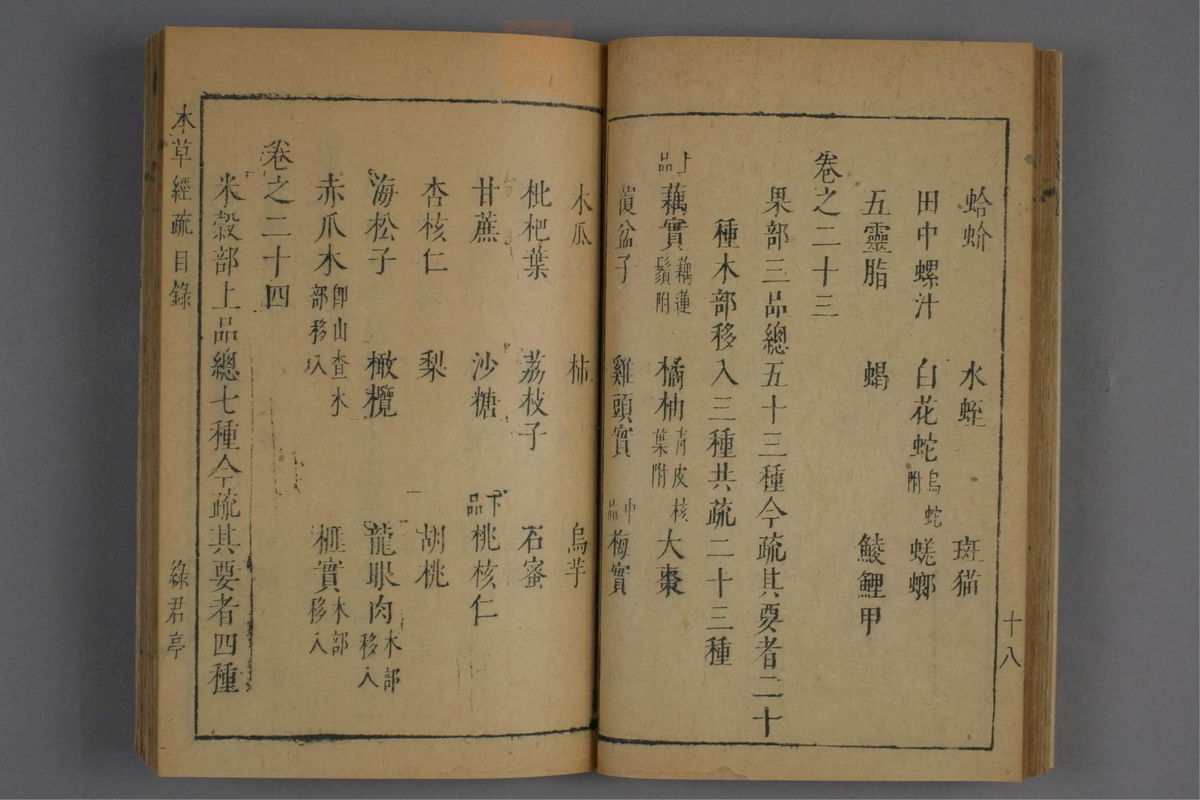 蛤蚧 水蛭 斑猫
田中螺汁 白花蛇烏蛇附 蜣螂
五靈脂 蝎 鯪鯉甲
卷之二十三
果部三品總五十三種今疏其要者二十
種木部移入三種共疏二十三種
上品 藕實藕蓮鬚附 橘柚青皮核葉附 大棗
覆盆子 雞頭實 中品 梅實
木瓜 柿 烏芋
枇杷葉 荔枝子 石蜜
甘蔗 沙糖 下品 桃核仁
杏核仁 梨 胡桃
海松子 橄欖 龍眼肉木部移入
赤爪木卽山查木部移入 榧實木部移入
卷之二十四
米穀部上品總七種今疏其要者四種
本草經疏 目錄
綠君亭
十八